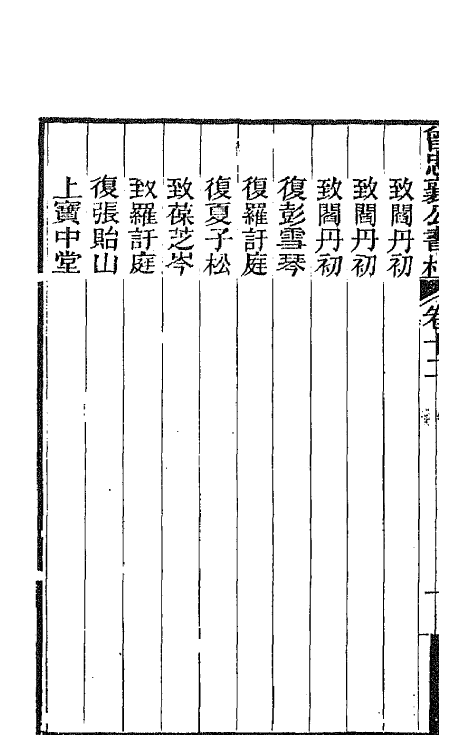 曾忠襄公書札 卷十二
致閻丹初
致閻丹初
致閻丹初
復彭雪琴
復羅訏庭
復夏子松
致葆芝岑
致羅訏庭
復張貽山
上寶中堂